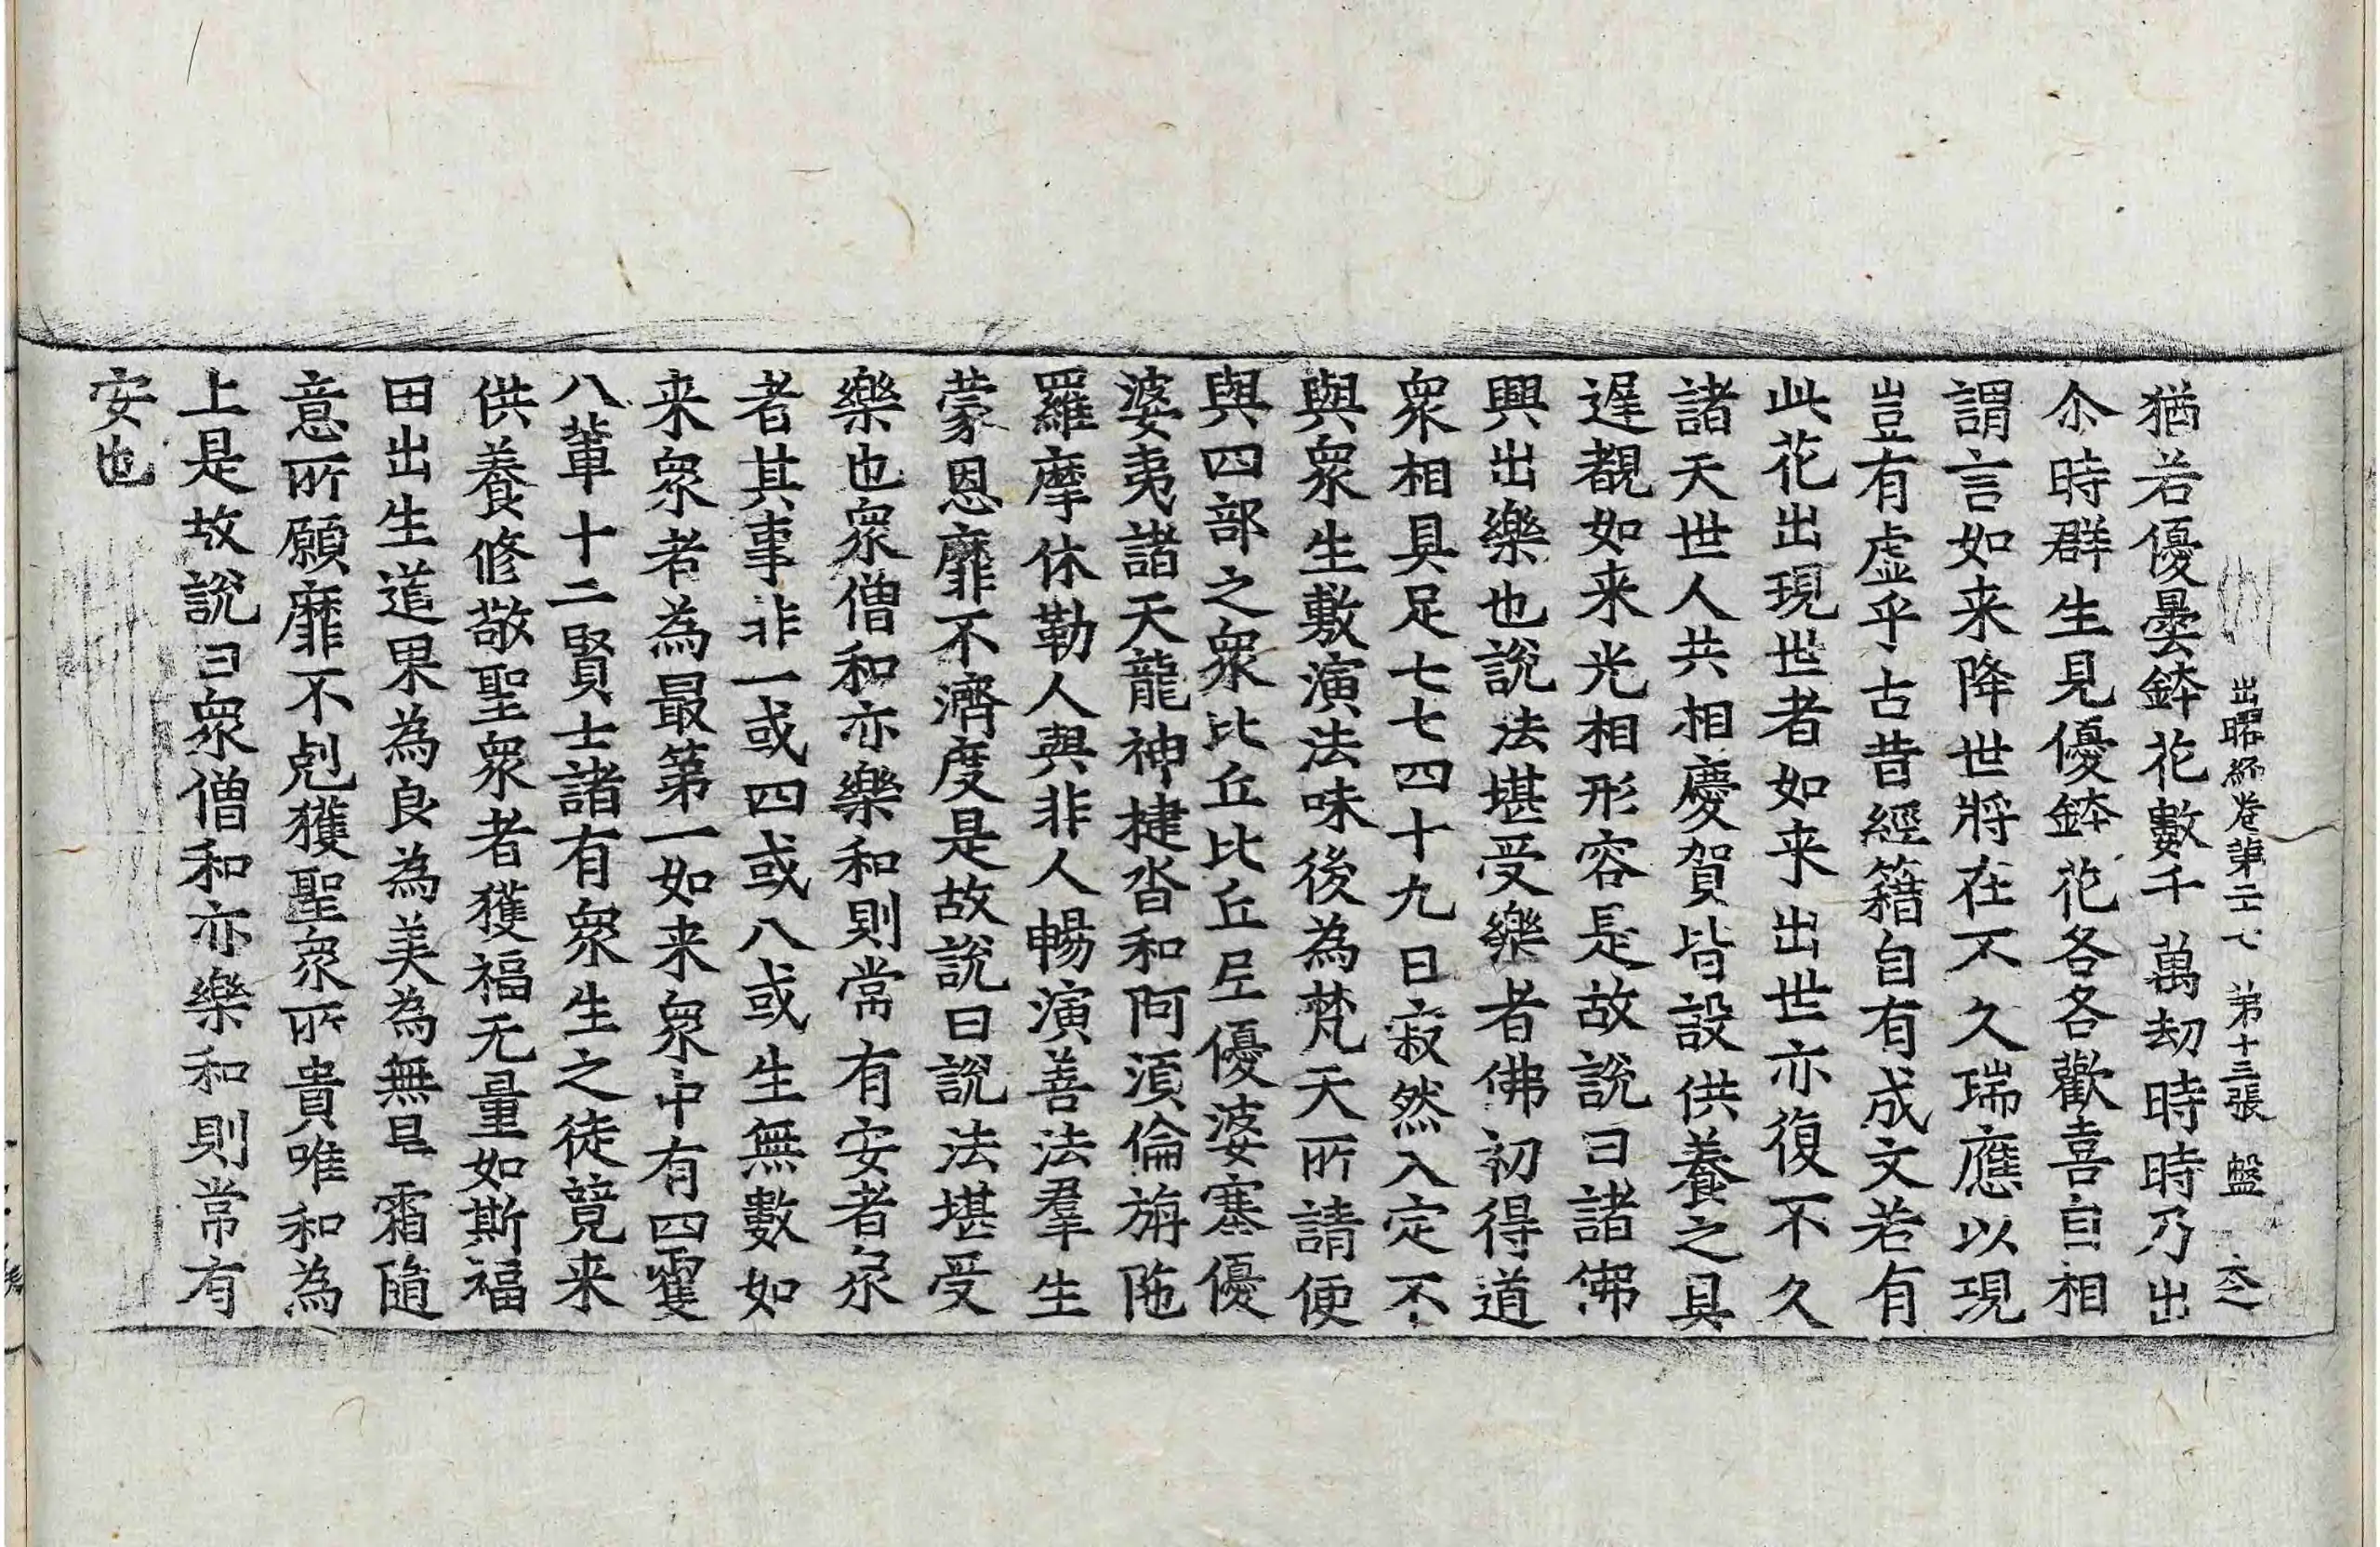 出曜經卷第二十七 第十三張 盤
猶若優曇鉢花數千萬劫時時乃出
尒時群生見優鉢花各各歡喜自相
謂言如来降世將在不久瑞應以現
豈有虛乎古昔經籍自有成文若有
此花出現世者如来出世亦復不久
諸天世人共相慶賀皆設供養之具
遅覩如来光相形容是故說曰諸佛
興出樂也說法堪受樂者佛初得道
衆相具足七七四十九日寂然入定不
與衆生敷演法味後為梵天所請便
與四部之衆比丘比丘尼優婆塞優
婆夷諸天龍神揵沓和阿須倫旃陁
羅摩休勒人與非人暢演善法羣生
蒙恩靡不濟度是故說曰說法堪受
樂也衆僧和亦樂和則常有安者衆
者其事非一或四或八或生無數如
来衆者為最第一如来衆中有四雙
八輩十二賢士諸有衆生之徒競来
供養修敬聖衆者獲福无量如斯福
田出生道果為良為美為無旱霜隨
意所願靡不剋獲聖衆所貴唯和為
上是故說曰衆僧和亦樂和則常有
安也